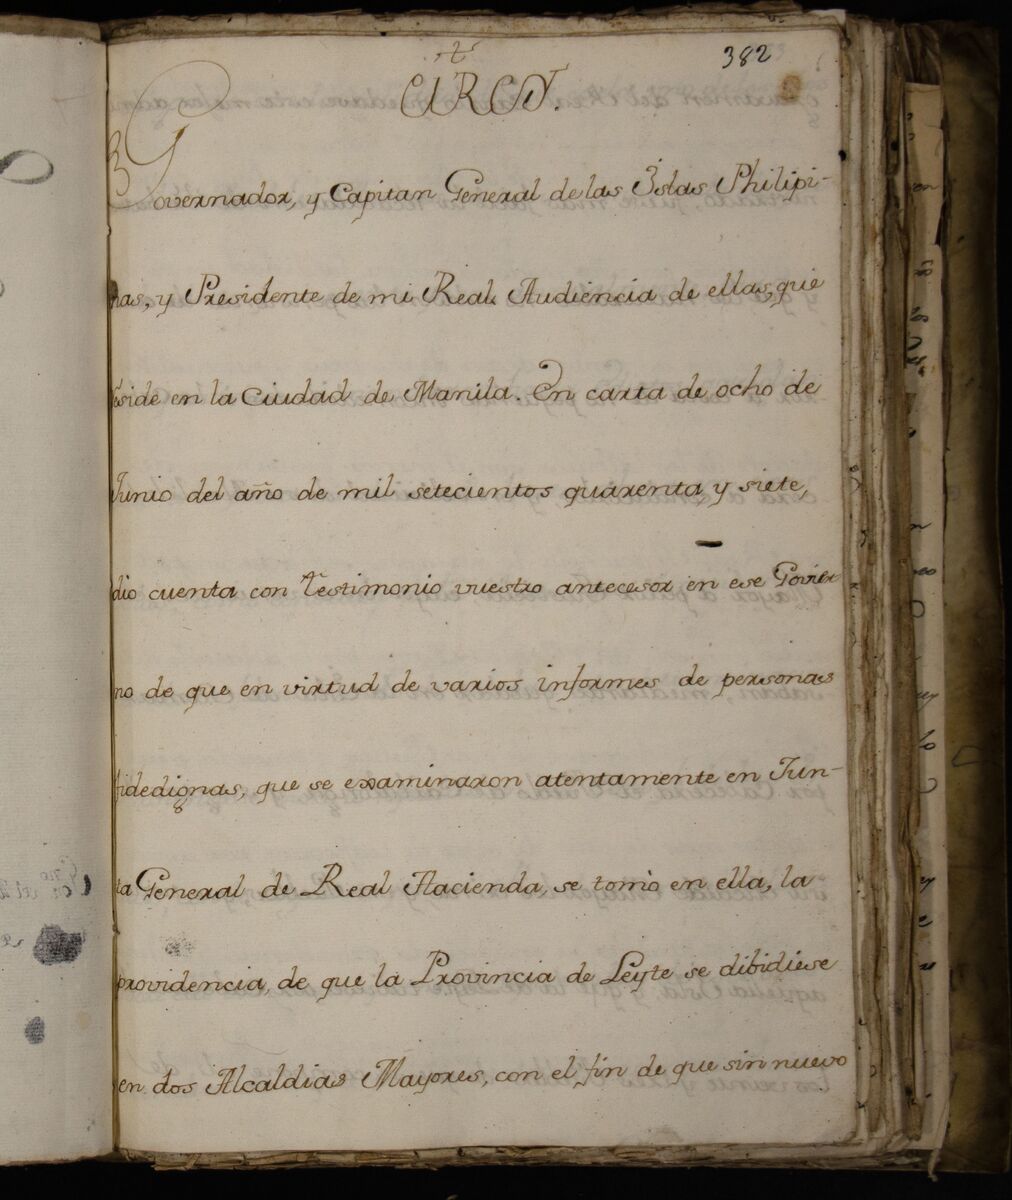 382
Governador, y Capitan General de las Yslas Philipi-
nas, y Presidente de mi Real Audiencia de ellas, que
reside en la Ciudad de Manila. En carta de ocho de
Junio del año de mil setecientos quarenta, y siete,
dio cuenta con testimonio vuestro antecesor en ese Govier
no de que en virtud de varios informes de personas
fidedignas, que se examinaron atentamente en Jun-
ta General de Real Hacienda, se tomó en ella, la
providencia, de que la Provincia de Leyte se dibidiese
en dos Alcaldias Mayores, con el fin de que sin nuevo